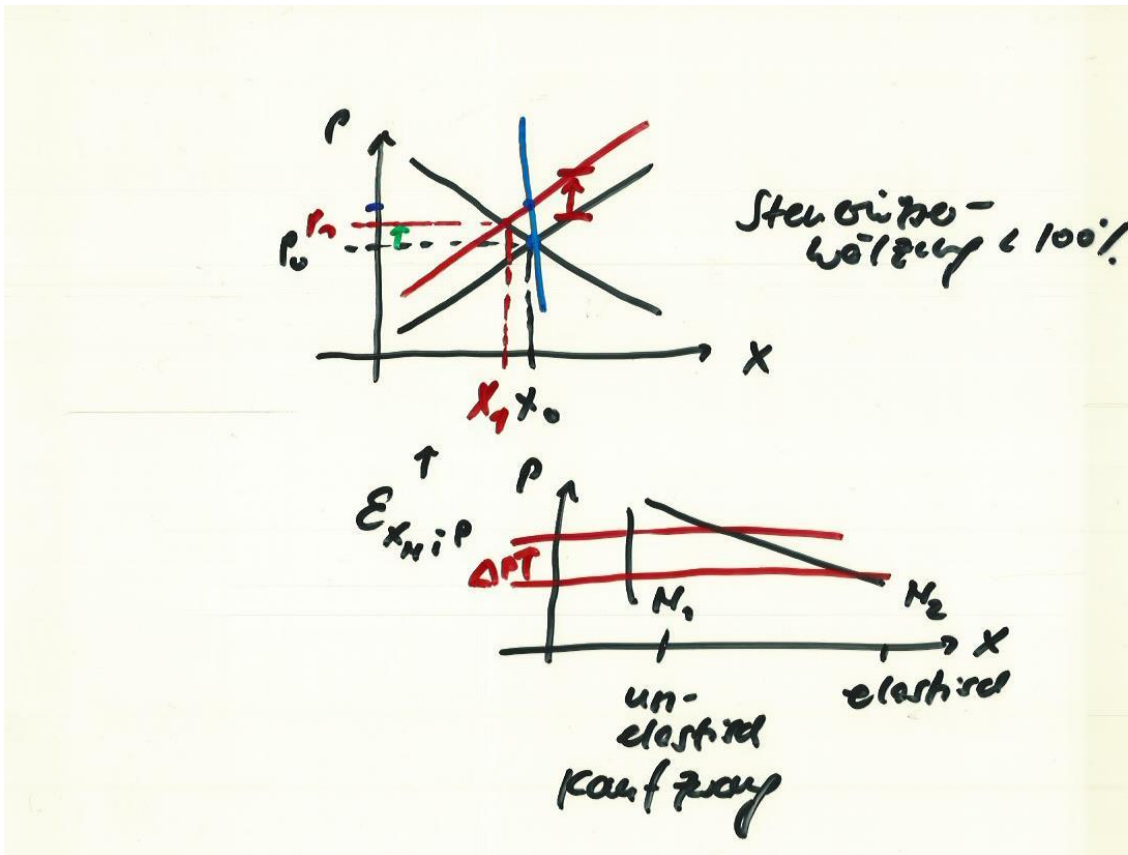 P
P₁
P₀
T
Steuerüber-
wälzung < 100%
X
X₁ X₀
↑
ε_{x_N; P}
P
ΔPT
N₁
N₂
X
un-
elastisch
elastisch
Kaufzwang